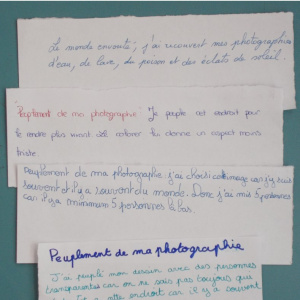 Le monde envouté; j'ai recouvert mes photographies
d'eau, de lave, du poison et des éclats de soleil.
Peuplement de ma photographie: Je peuple cet endroit pour
le rendre plus vivant et le colorer lui donne un aspect moins
triste.
Peuplement de ma photographie. j'ai choisi cette image car j'y suis
souvent et il y a souvent du monde. Donc j'ai mis 5 personnes
car il y a minimum 5 personnes là bas.
Peuplement de ma photographie
J'ai peuplé mon dessin avec des personnes
transparentes car on ne sais pas toujours qui
cet endroit car il y a souvent